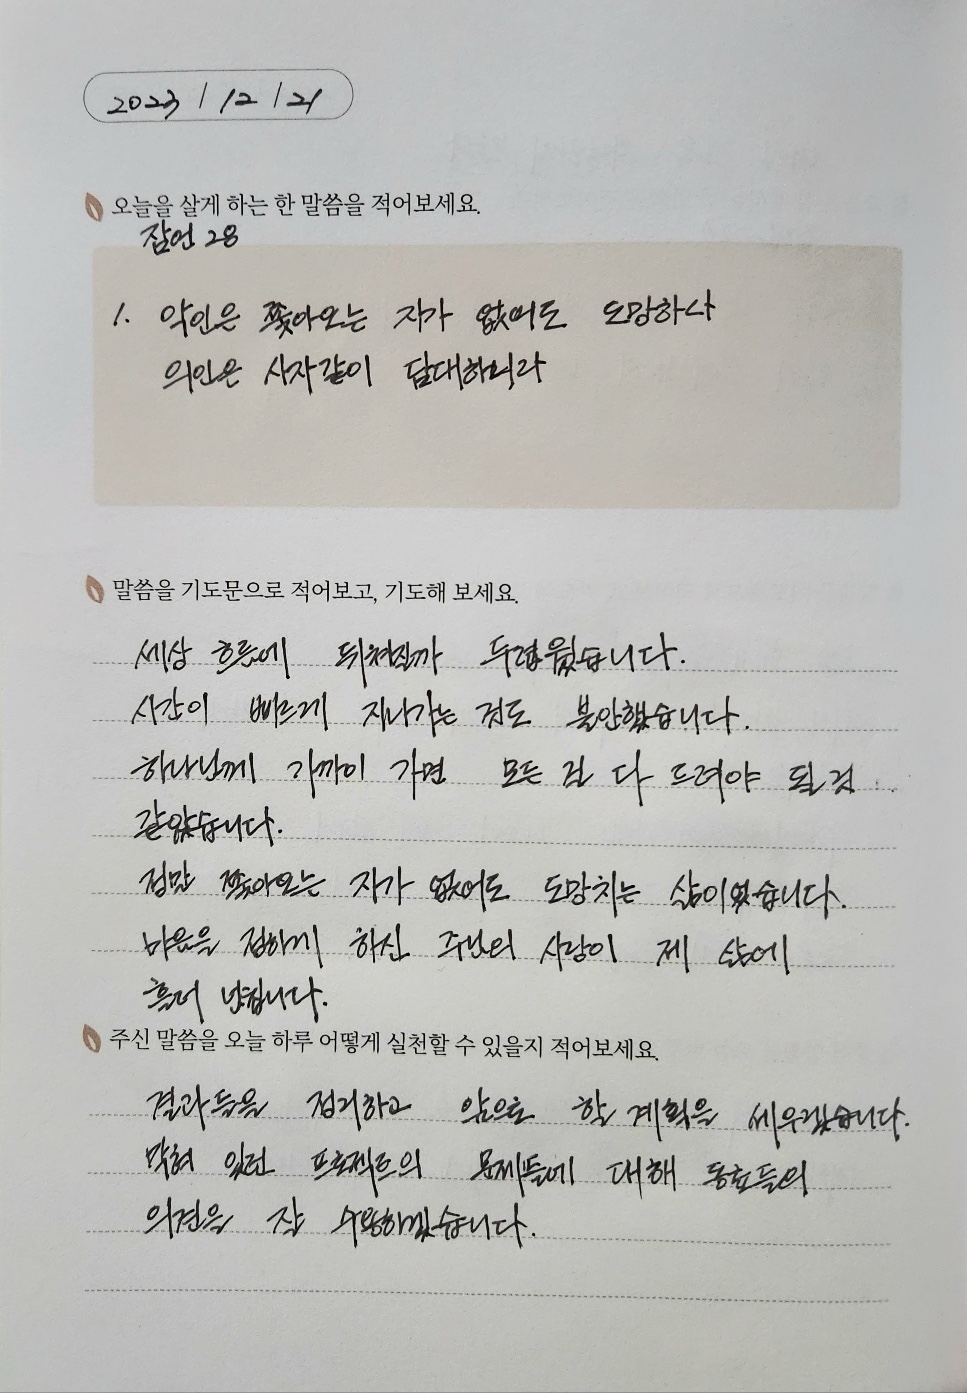 2023 / 12 / 21
오늘을 살게 하는 한 말씀을 적어보세요.
잠언 28
1. 악인은 쫓아오는 자가 없어도 도망하나
의인은 사자같이 담대하니라
말씀을 기도문으로 적어보고, 기도해 보세요.
세상 흐름에 뒤쳐질까 두려웠습니다.
시간이 빠르게 지나가는 것도 불안했습니다.
하나님께 가까이 가면 모든 걸 다 드려야 될 것
같았습니다.
정말 쫓아오는 자가 없어도 도망치는 삶이었습니다.
마음을 접하게 하신 주님의 사랑이 제 삶에
흘러 넘칩니다.
주신 말씀을 오늘 하루 어떻게 실천할 수 있을지 적어보세요.
결과들을 정리하고 앞으로 할 계획을 세우겠습니다.
막혀 있던 프로젝트의 문제들에 대해 동료들의
의견을 잘 수용하겠습니다.